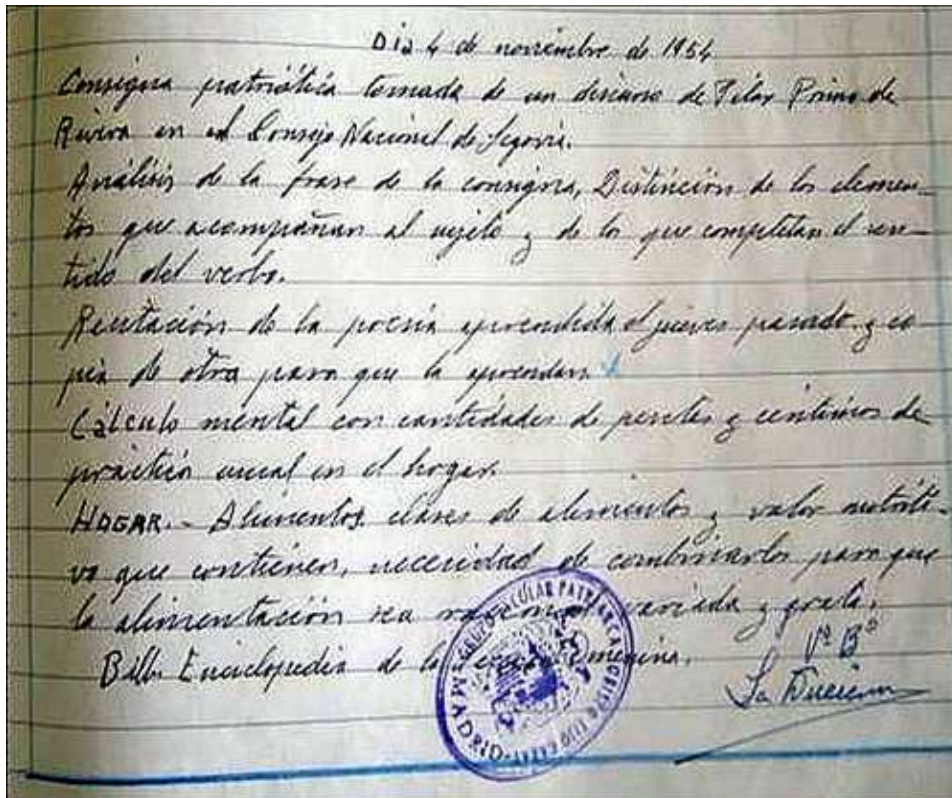 Dia 4 de noviembre de 1954
Consigna patriótica tomada de un discurso de Pilar Primo de
Rivera en el Consejo Nacional de Segovia.
Análisis de la frase de la consigna, Distinción de los elemen-
tos que acompañan al sujeto y de los que completan el sen-
tido del verbo.
Recitación de la poesía aprendida el jueves pasado y co
pia de otra para que la aprendan.
Cálculo mental con cantidades de pesetas y céntimos de
práctica usual en el hogar.
HOGAR. - Alimentos, clases de alimentos y valor nutriti-
vo que contienen, necesidad de combinarlos para que
la alimentación sea racional variada y grata.
Bibl. Enciclopedia de la
Vº Bº
La Directora
GRUPO ESCOLAR PATRIARCA OBISPO EIJO GARAY
MADRID